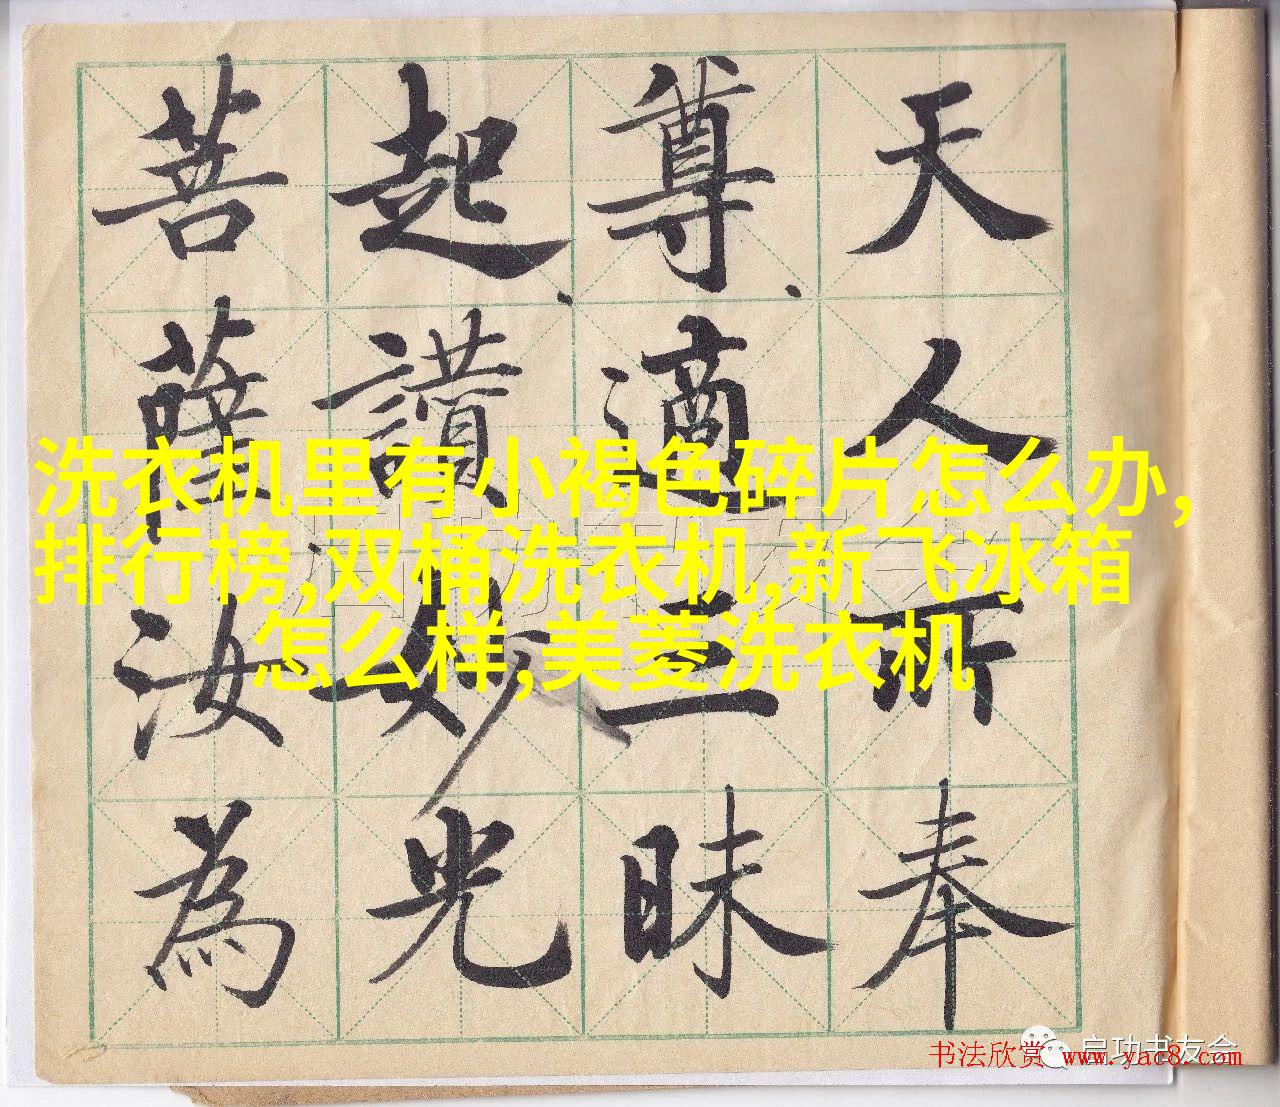 天人所奉
尊適三昧
起讚妙光
菩薩汝為
洗衣机里有小褐色碎片怎么办,
排行榜,双桶洗衣机,新飞冰箱
怎么样,美菱洗衣机
启功书友会
书法欣赏 www.yac8.com